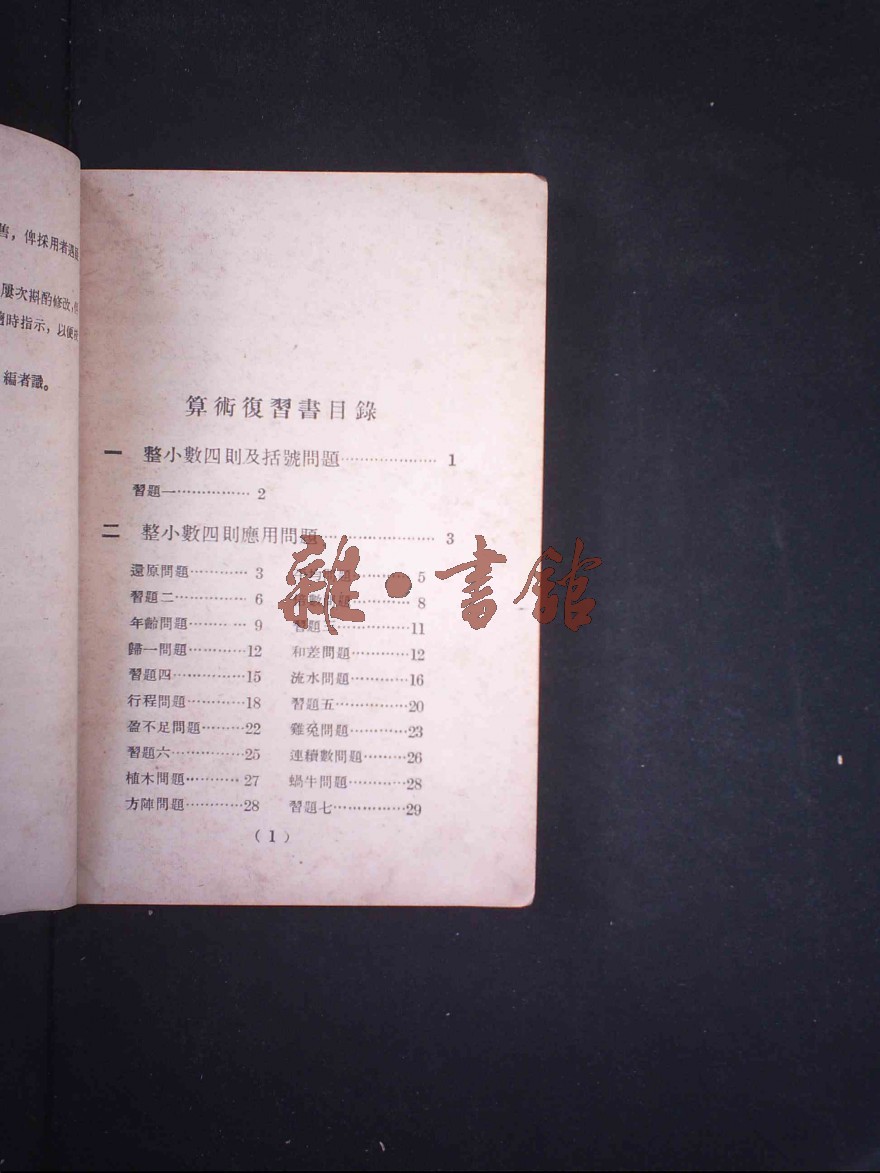 售，俾採用者遇
屢次斟酌修改，
時指示，以便
編者識。
算術復習書目錄
一 整小數四則及括號問題………………… 1
習題一…………… 2
二 整小數四則應用問題…………………… 3
還原問題………… 3 ………… 5
習題二…………… 6 ………… 8
年齡問題………… 9 習題三……………11
歸一問題…………12 和差問題…………12
習題四……………15 流水問題…………16
行程問題…………18 習題五……………20
盈不足問題………22 雞兔問題…………23
習題六……………25 連續數問題………26
植木問題…………27 蝸牛問題…………28
方陣問題…………28 習題七……………29
(1)
雜·書館